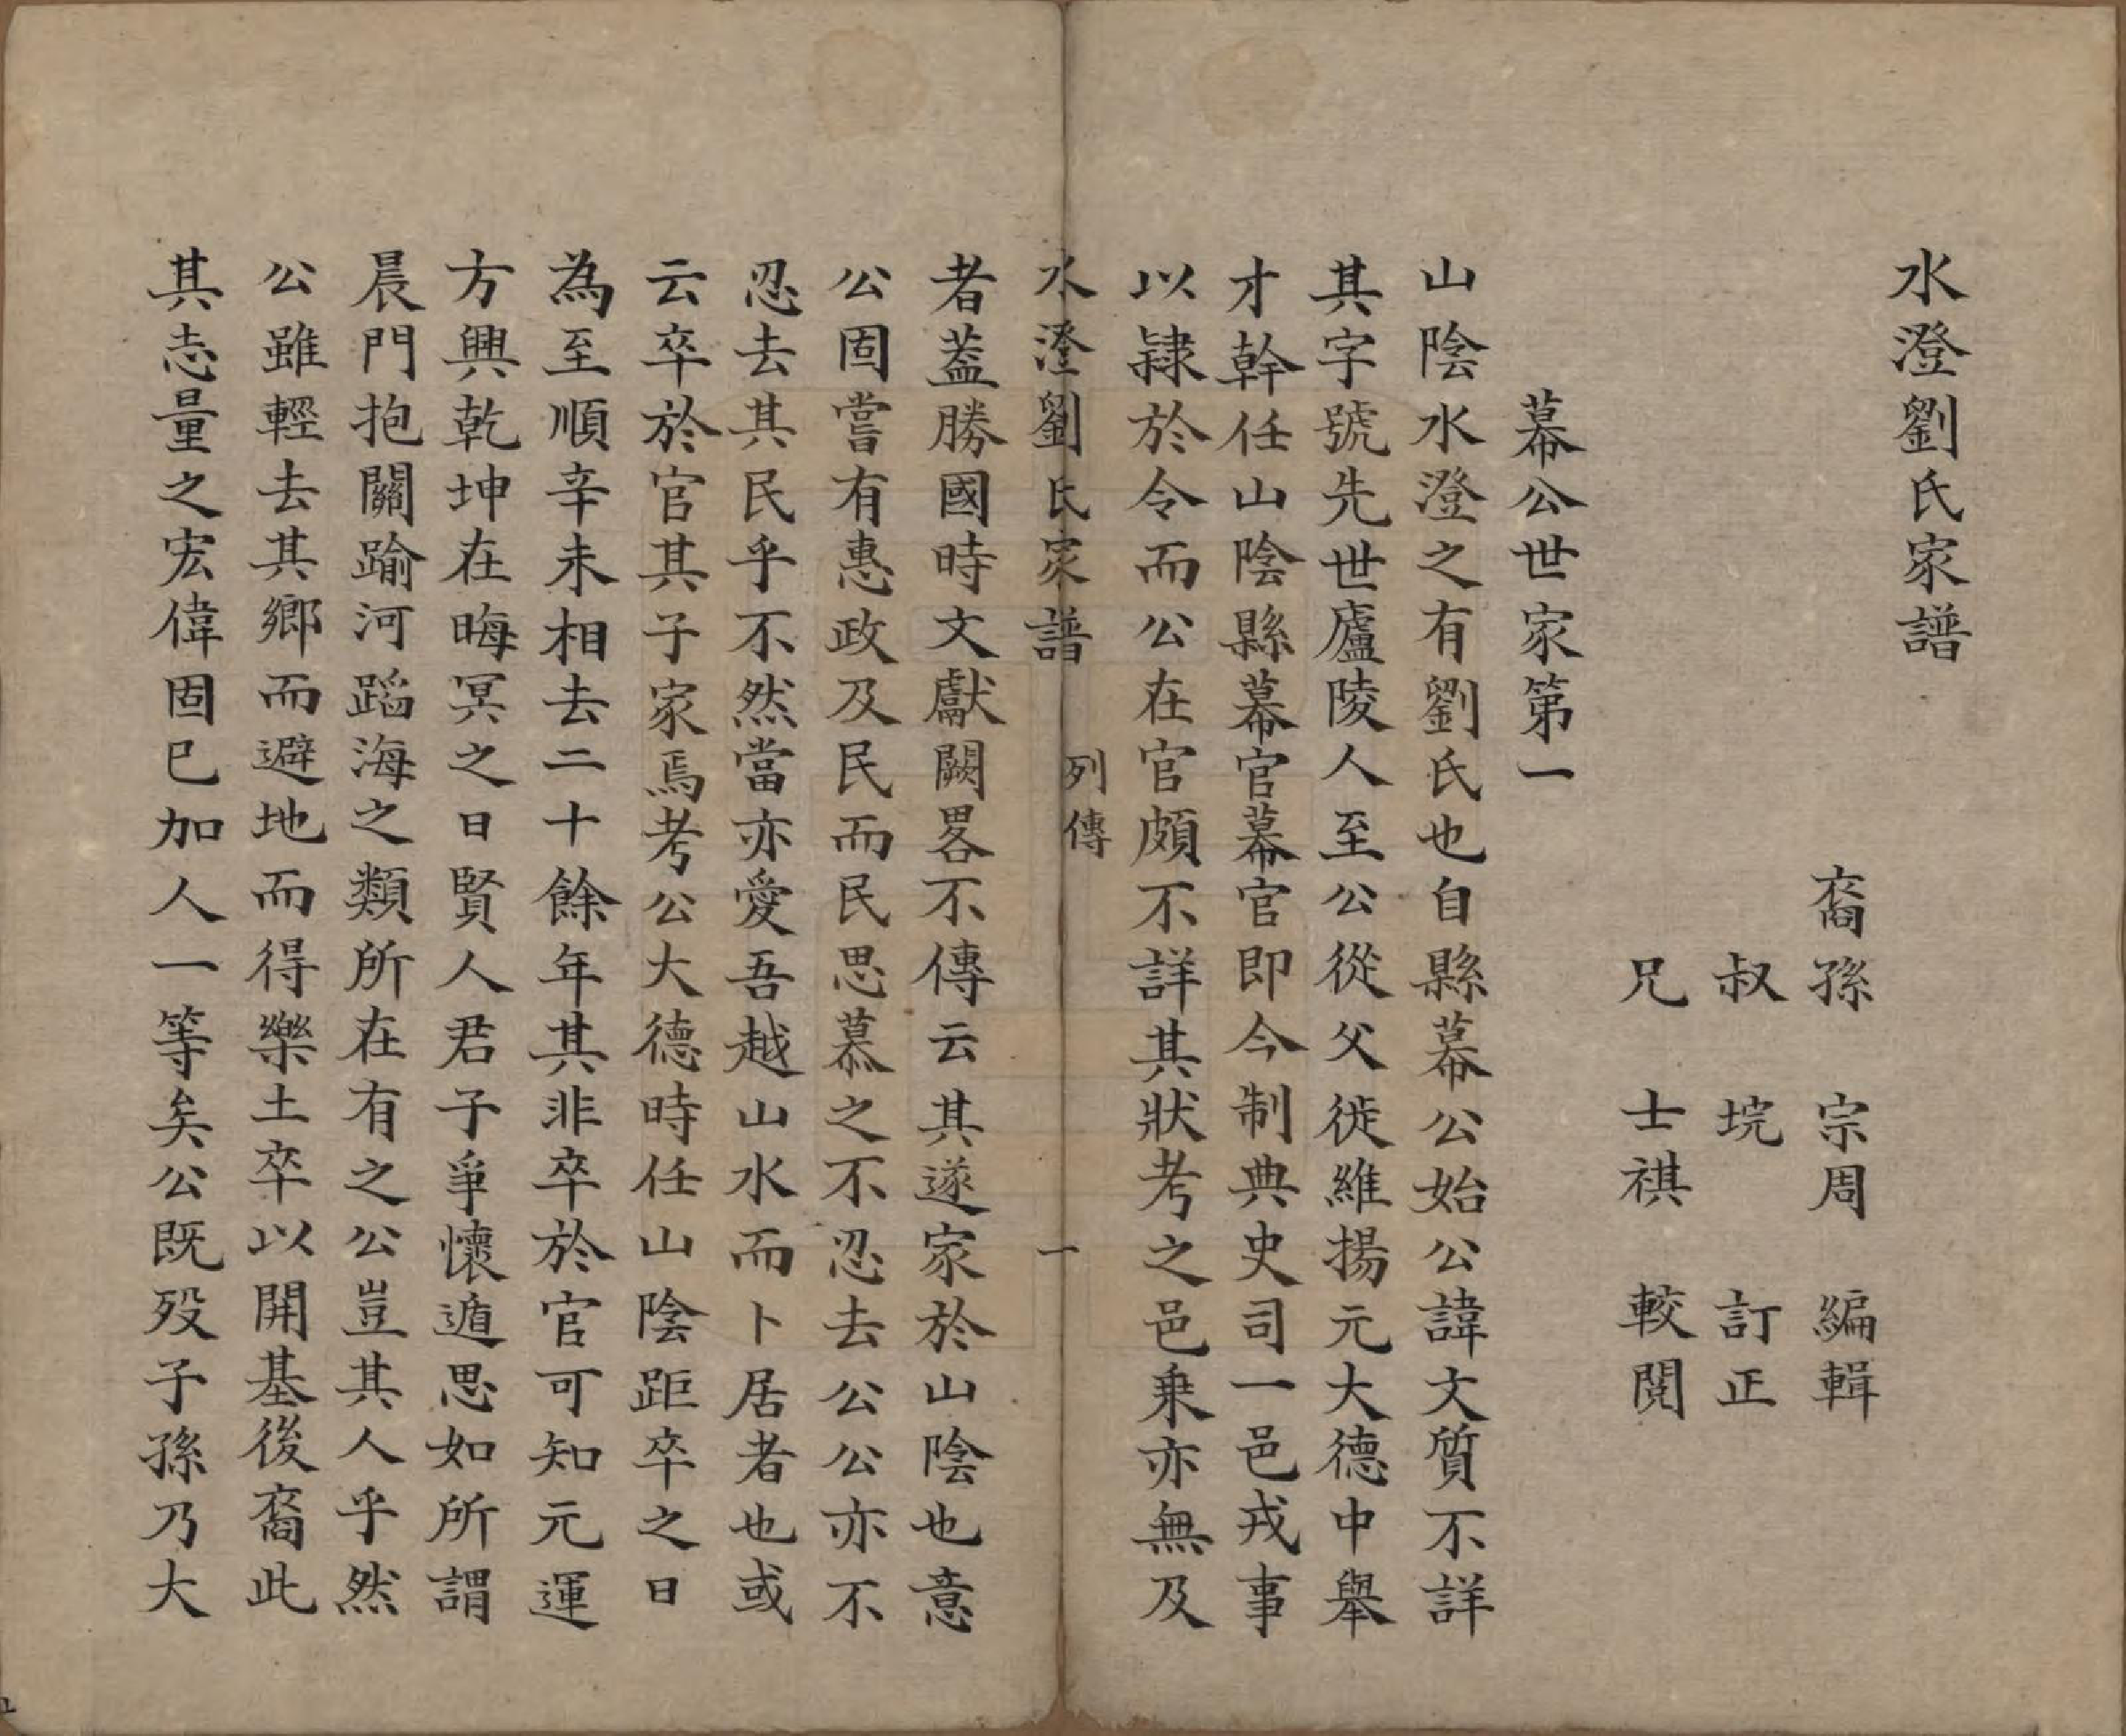 水澄劉氏家譜
裔孫　宗周　編輯
叔　垸　訂正
兄　士祺　較閱
幕公世家第一
山陰水澄之有劉氏也自縣幕公始公諱文質不詳
其字號先世廬陵人至公從父徙維揚元大德中舉
才幹任山陰縣幕官幕官即今制典史司一邑戎事
以隷於令而公在官頗不詳其狀考之邑乗亦無及
水澄劉氏家譜　列傳　一
者葢勝國時文獻闕畧不傳云其遂家於山陰也意
公固嘗有惠政及民而民思慕之不忍去公公亦不
忍去其民乎不然當亦愛吾越山水而卜居者也或
云卒於官其子家焉考公大德時任山陰距卒之日
為至順辛未相去二十餘年其非卒於官可知元運
方興乾坤在晦冥之日賢人君子爭懷遁思如所謂
晨門抱關踰河蹈海之類所在有之公豈其人乎然
公雖輕去其鄉而避地而得樂土卒以開基後裔此
其志量之宏偉固已加人一等矣公既歿子孫乃大